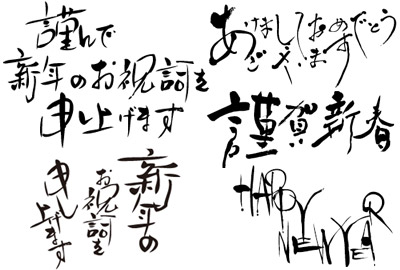 謹んで
新年のお祝詞を
申し上げます
あけましておめでとう
ございます
謹賀新春
新年の
お祝詞を
申し上げます
HAPPY
NEW YEAR